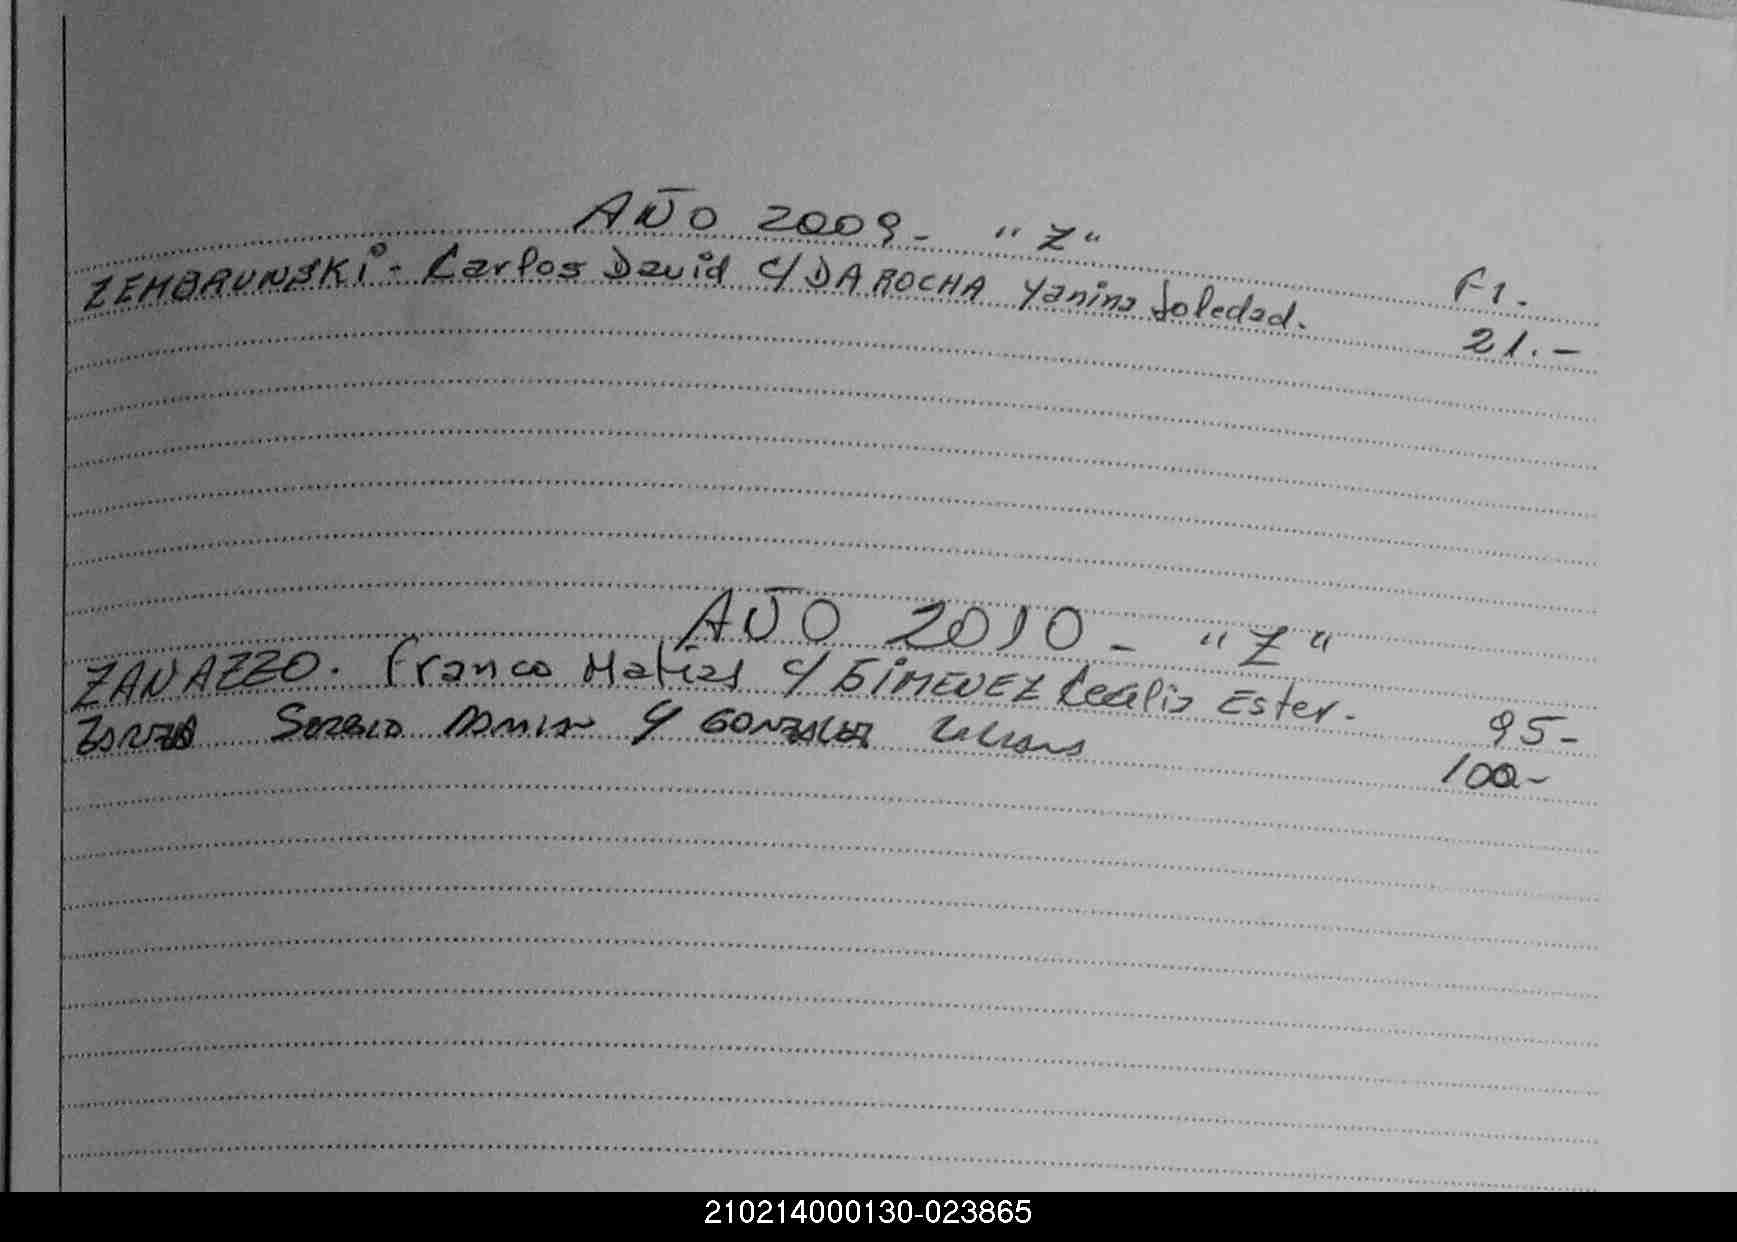 AÑO 2009- "Z"
Fl.
ZEMBRUNSKI - Carlos David c/ DA ROCHA Yanina Soledad. 21.-
AÑO 2010 - "Z"
ZANAZZO. Franco Matías c/ GIMENEZ Cecilia Ester. 95-
Sergio Damian c/ GONZALEZ Liliana 100-
210214000130-023865